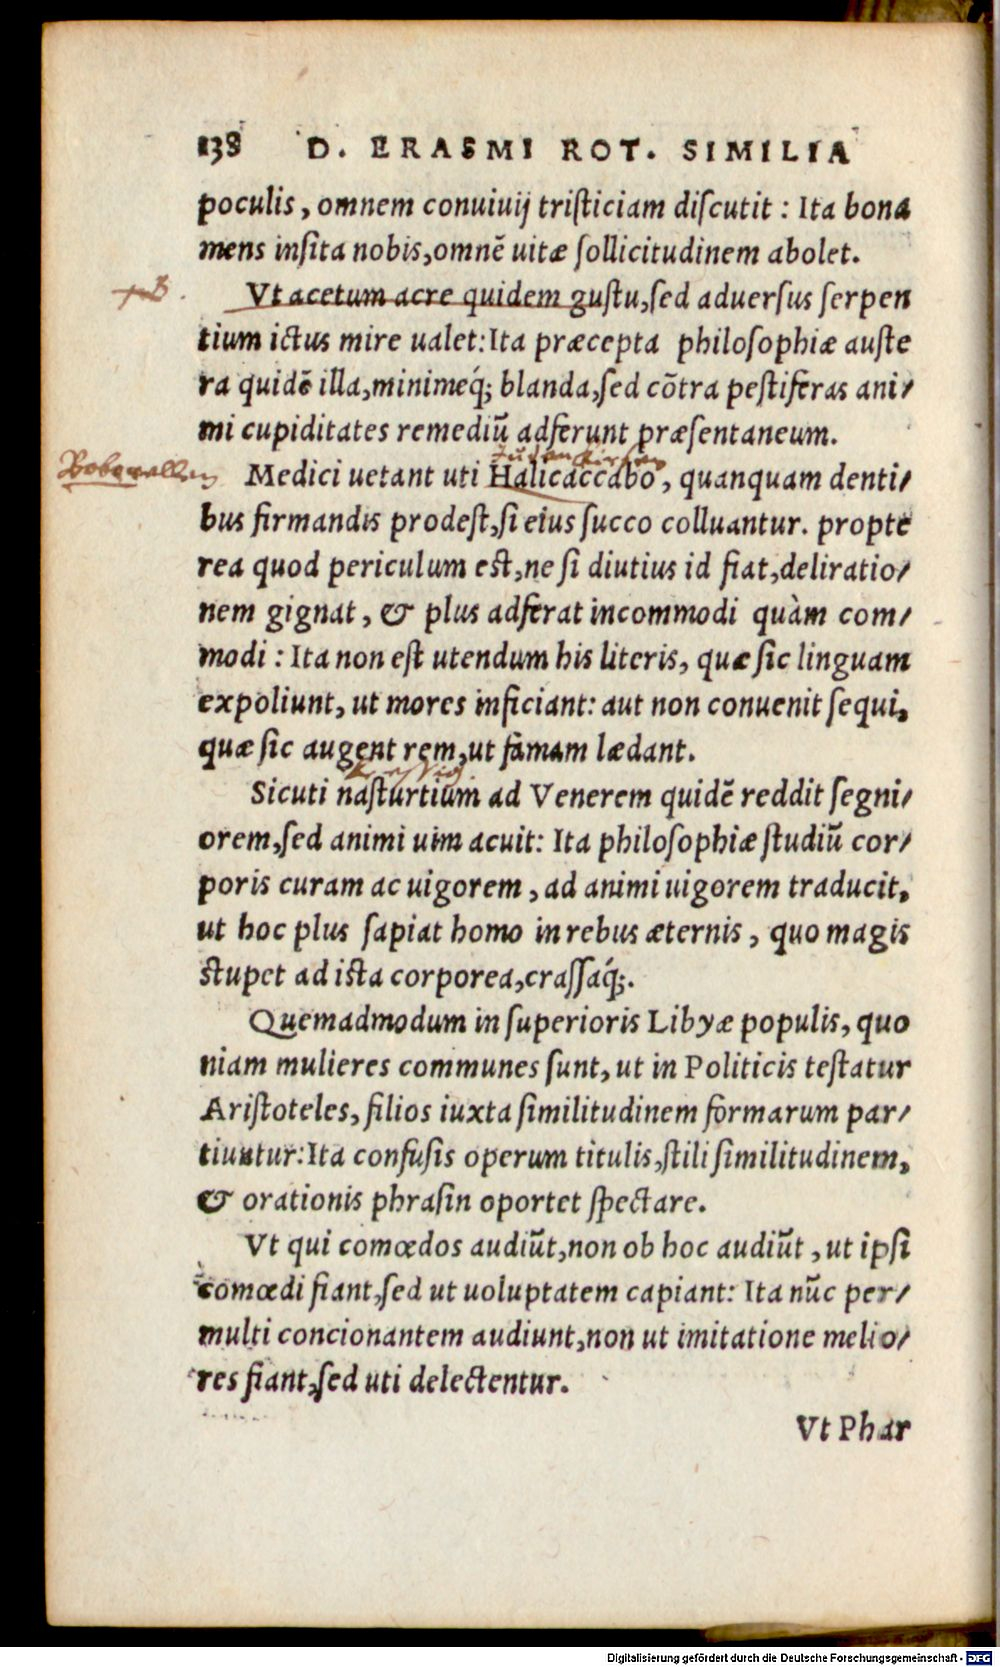 138 D. ERASMI ROT. SIMILIA
poculis, omnem conuiuij tristiciam discutit : Ita bona
mens insita nobis, omnē uitæ sollicitudinem abolet.
Vt acetum acre quidem gustu, sed aduersus serpen
tium ictus mire ualet: Ita præcepta philosophiæ auste
ra quidē illa, minimeq́; blanda, sed cōtra pestiferas ani/
mi cupiditates remediū adferunt præsentaneum.
Medici uetant uti Halicaccabo, quanquam denti/
bus firmandis prodest, si eius succo colluantur. propte
rea quod periculum est, ne si diutius id fiat, deliratio/
nem gignat, & plus adferat incommodi quàm com/
modi : Ita non est utendum his literis, quæ sic linguam
expoliunt, ut mores inficiant: aut non conuenit sequi,
quæ sic augent rem, ut famam lædant.
Sicuti nasturtium ad Venerem quidē reddit segni/
orem, sed animi uim acuit: Ita philosophiæ studiū cor/
poris curam ac uigorem, ad animi uigorem traducit,
ut hoc plus sapiat homo in rebus æternis, quo magis
stupet ad ista corporea, crassaq́;.
Quemadmodum in superioris Libyæ populis, quo
niam mulieres communes sunt, ut in Politicis testatur
Aristoteles, filios iuxta similitudinem formarum par/
tiuntur: Ita confusis operum titulis, stili similitudinem,
& orationis phrasin oportet spectare.
Vt qui comœdos audiūt, non ob hoc audiūt, ut ipsi
comœdi fiant, sed ut uoluptatem capiant: Ita nūc per/
multi concionantem audiunt, non ut imitatione melio/
res fiant, sed uti delectentur.
Vt Phar
Digitalisierung gefördert durch die Deutsche Forschungsgemeinschaft - DFG